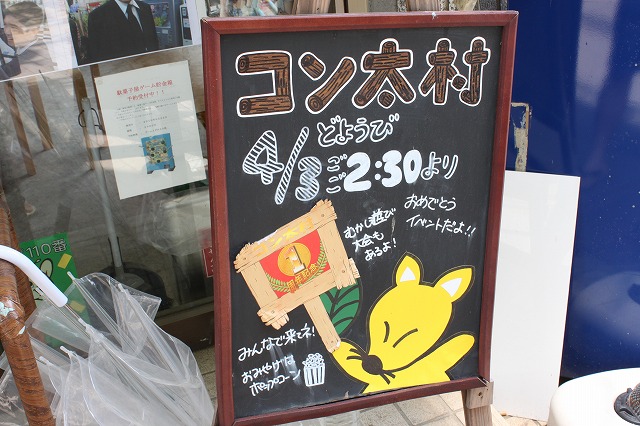 コン太村
4/3 どようび
ごご2:30より
おめでとう
イベントだよ!!
むかし遊び
大会も
あるよ!
1
周年記念
みんなで来てネ!
おみやげは
ポップコーン
駄菓子屋ゲーム貯金箱
予約受付中!!
110番